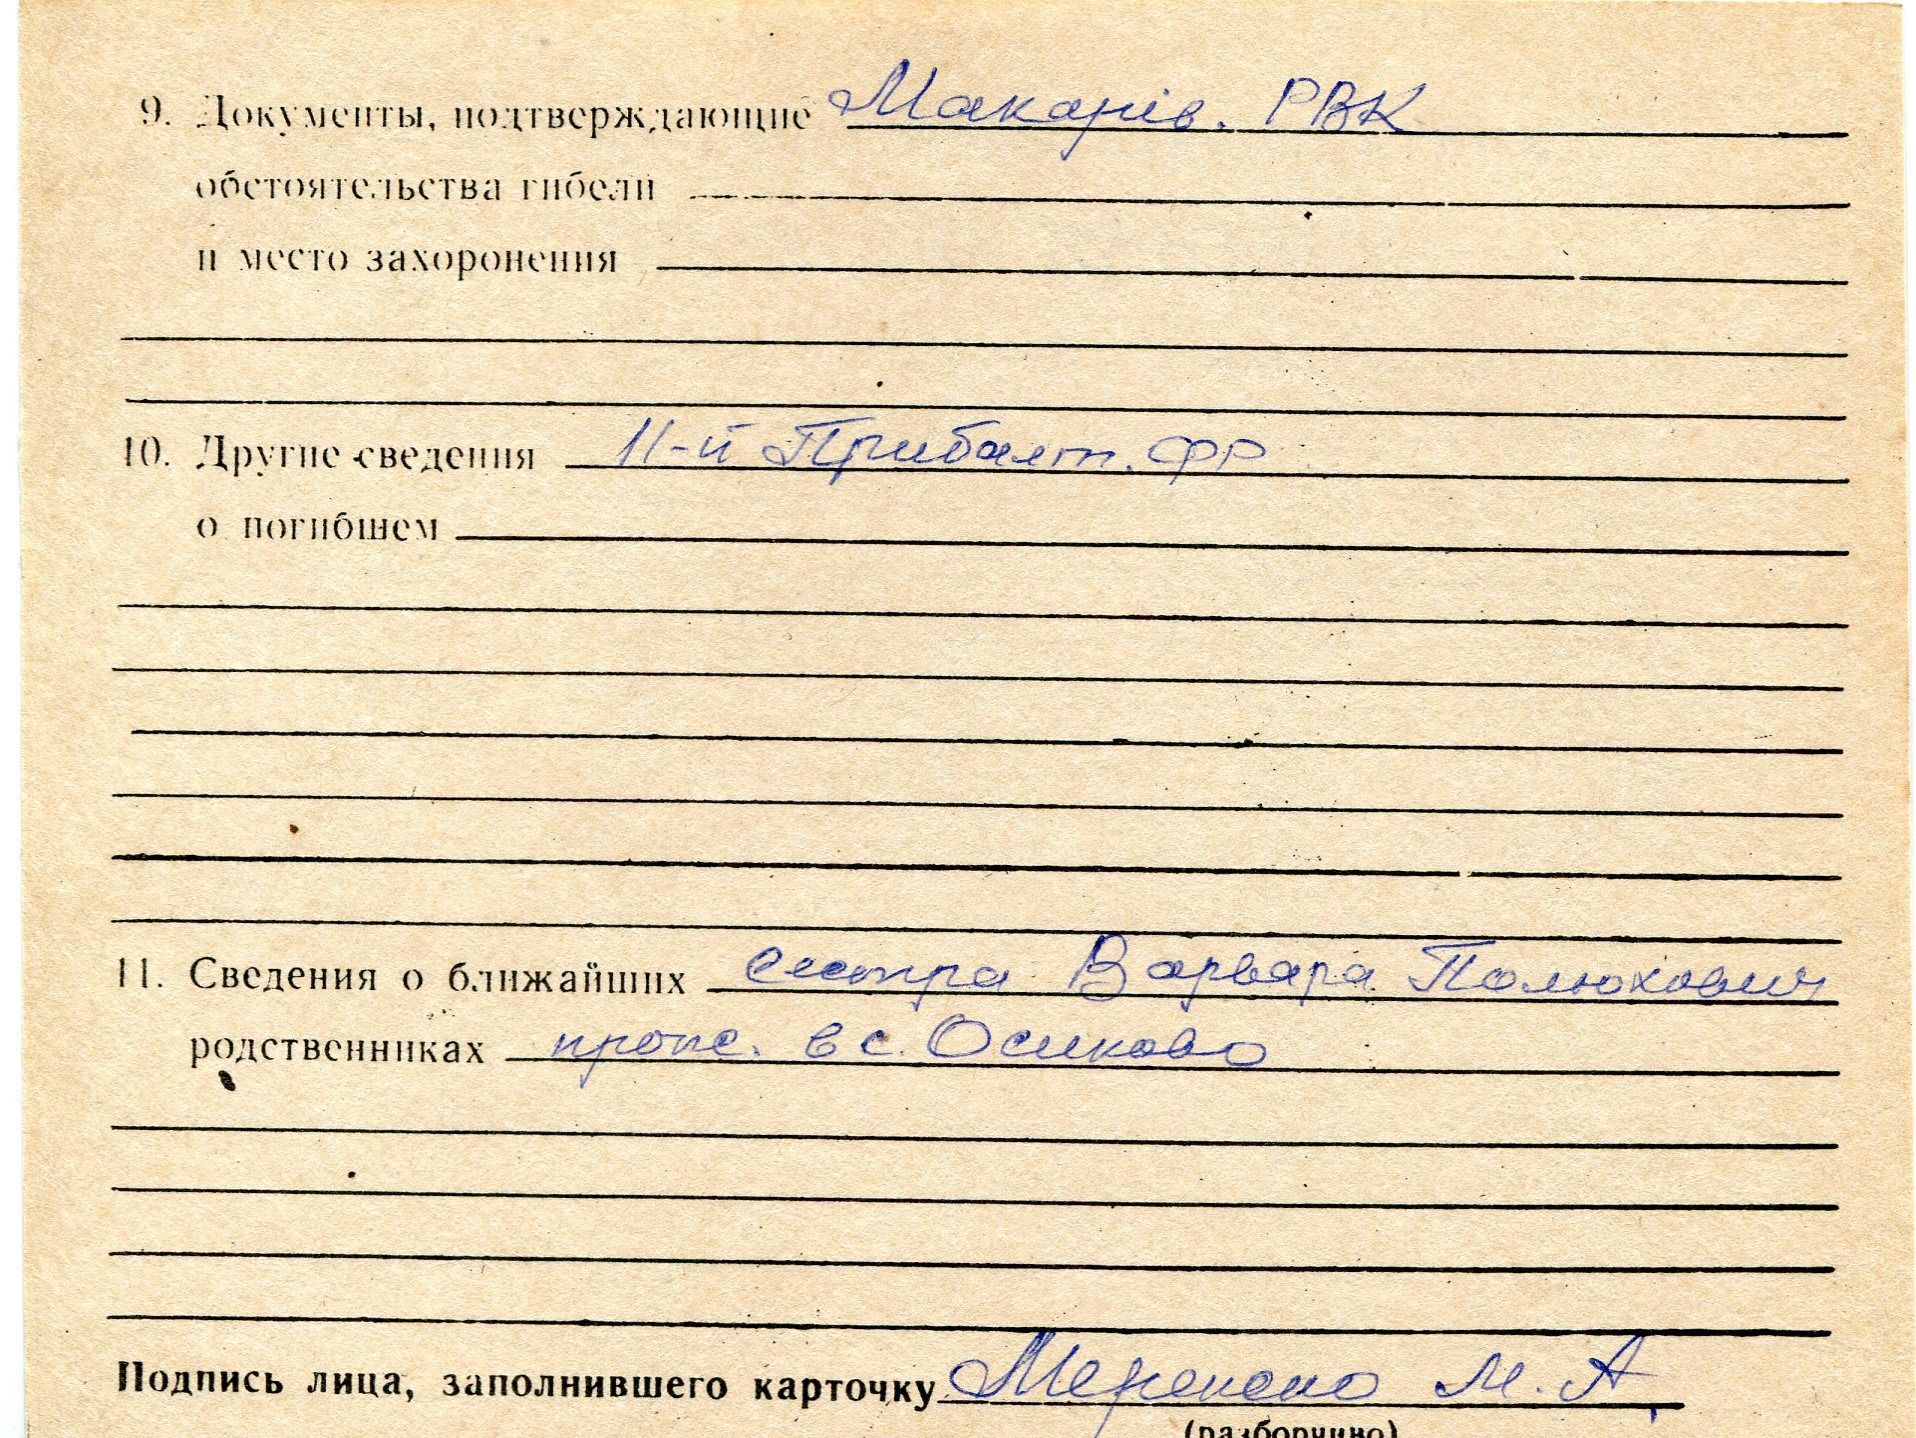 9. Документы, подтверждающие Макарів. РВК
обстоятельства гибели
и место захоронения
10. Другие сведения 11-й Прибалт. фр
о погибшем
11. Сведения о ближайших сестра Варвара Полюхович
родственниках прож. в с. Осиково
Подпись лица, заполнившего карточку М. А.
(разборчиво)